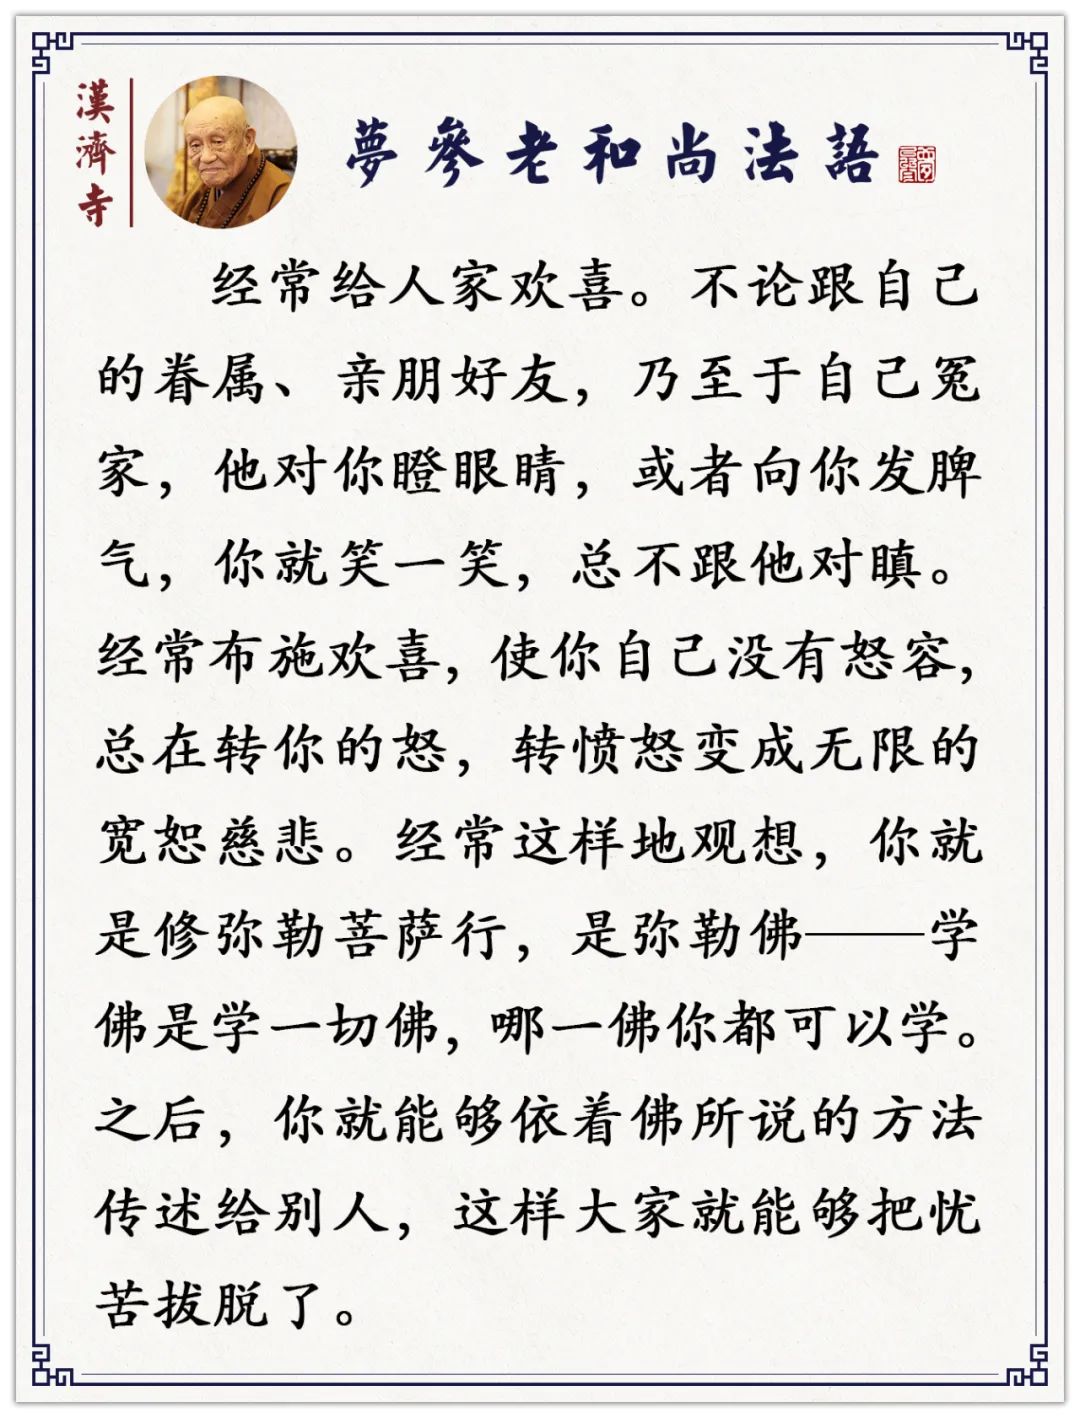 漢濟寺
夢參老和尚法語
经常给人家欢喜。不论跟自己
的眷属、亲朋好友，乃至于自己冤
家，他对你瞪眼睛，或者向你发脾
气，你就笑一笑，总不跟他对瞋。
经常布施欢喜，使你自己没有怒容，
总在转你的怒，转愤怒变成无限的
宽恕慈悲。经常这样地观想，你就
是修弥勒菩萨行，是弥勒佛——学
佛是学一切佛，哪一佛你都可以学。
之后，你就能够依着佛所说的方法
传述给别人，这样大家就能够把忧
苦拔脱了。